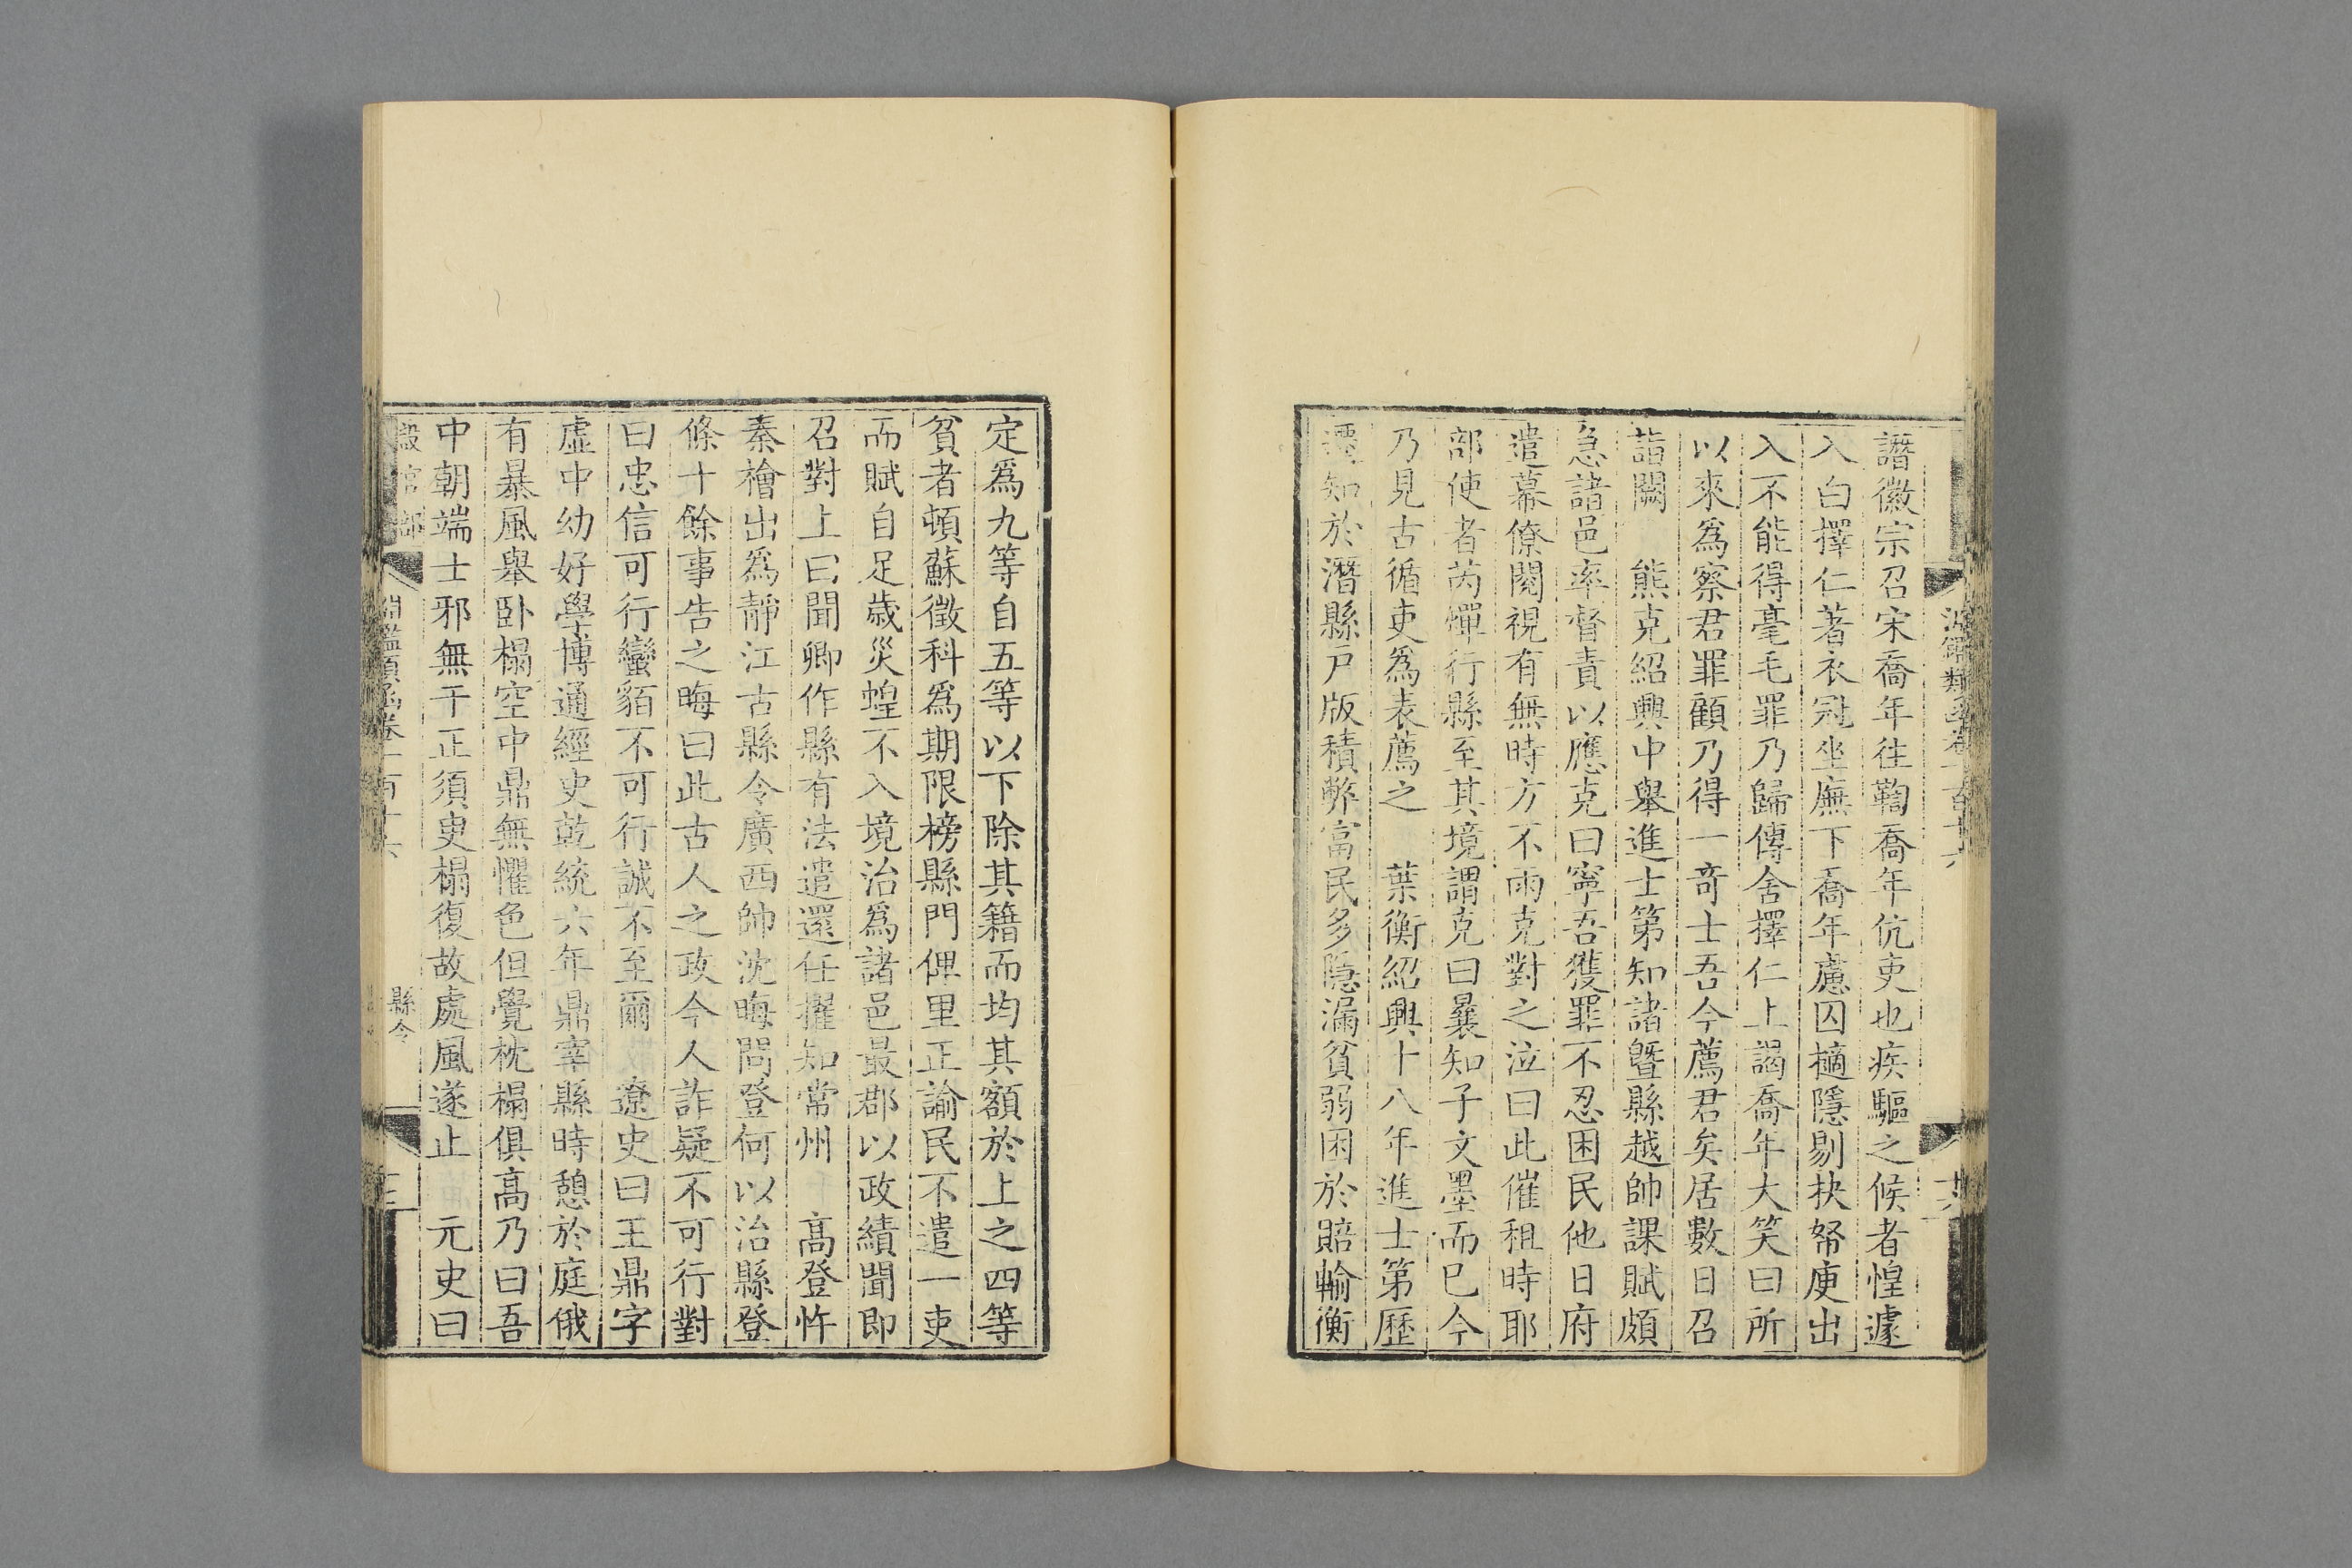 譖徽宗召宋喬年往鞫喬年伉吏也疾驅之候者惶遽
入白擇仁著衣冠坐廡下喬年慮囚擿隱剔抉帑庾出
入不能得毫毛罪乃歸傳舍擇仁上謁喬年大笑曰所
以來爲察君罪顧乃得一奇士吾今薦君矣居數日召
詣闕 熊克紹興中舉進士第知諸暨縣越帥課賦頗
急諸邑率督責以應克曰寧吾獲罪不忍困民他日府
遣幕僚閱視有無時方不雨克對之泣曰此催租時耶
部使者芮煇行縣至其境謂克曰曩知子文墨而已今
乃見古循吏爲表薦之 葉衡紹興十八年進士第歷
遷知於潛縣戸版積弊富民多隱漏貧弱困於賠輸衡
定爲九等自五等以下除其籍而均其額於上之四等
貧者頓蘇徵科爲期限榜縣門俾里正諭民不遣一吏
而賦自足歲災蝗不入境治爲諸邑最郡以政績聞即
召對上曰聞卿作縣有法遣還任擢知常州 高登忤
秦檜出爲靜江古縣令廣西帥沈晦問登何以治縣登
條十餘事告之晦曰此古人之政今人詐疑不可行對
曰忠信可行蠻貊不可行誠不至爾 遼史曰王鼎字
虛中幼好學博通經史乾統六年鼎宰縣時憩於庭俄
有暴風舉卧榻空中鼎無懼色但覺枕榻俱高乃曰吾
中朝端士邪無干正須臾榻復故處風遂止 元史曰
縣令